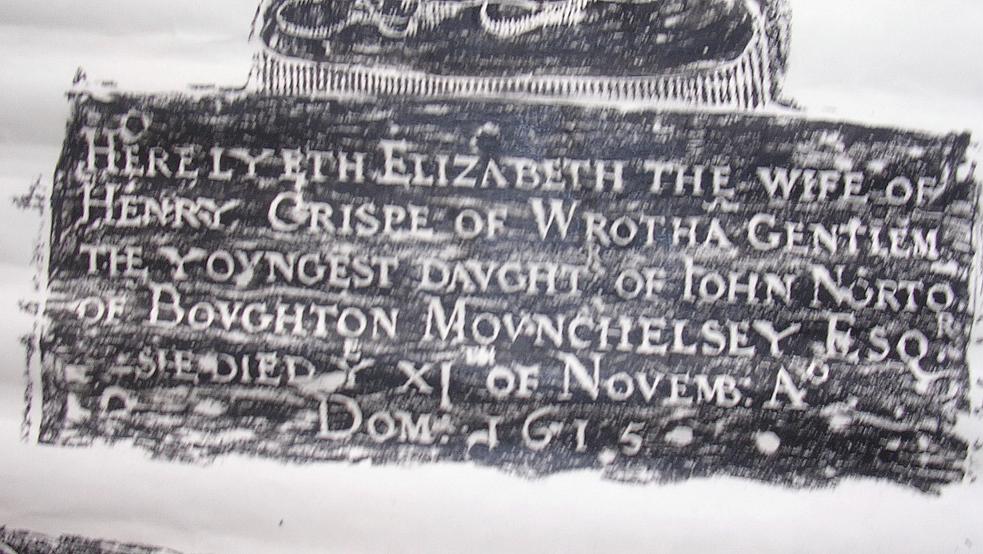 HERE LYETH ELIZABETH THE WIFE OF
HENRY CRISPE OF WROTHA GENTLEM
THE YOVNGEST DAVGHTR OF IOHN NORTO
OF BOVGHTON MOVNCHELSEY ESQR
SHE DIED YE XJTH OF NOVEMB: AO
DOM: 1615